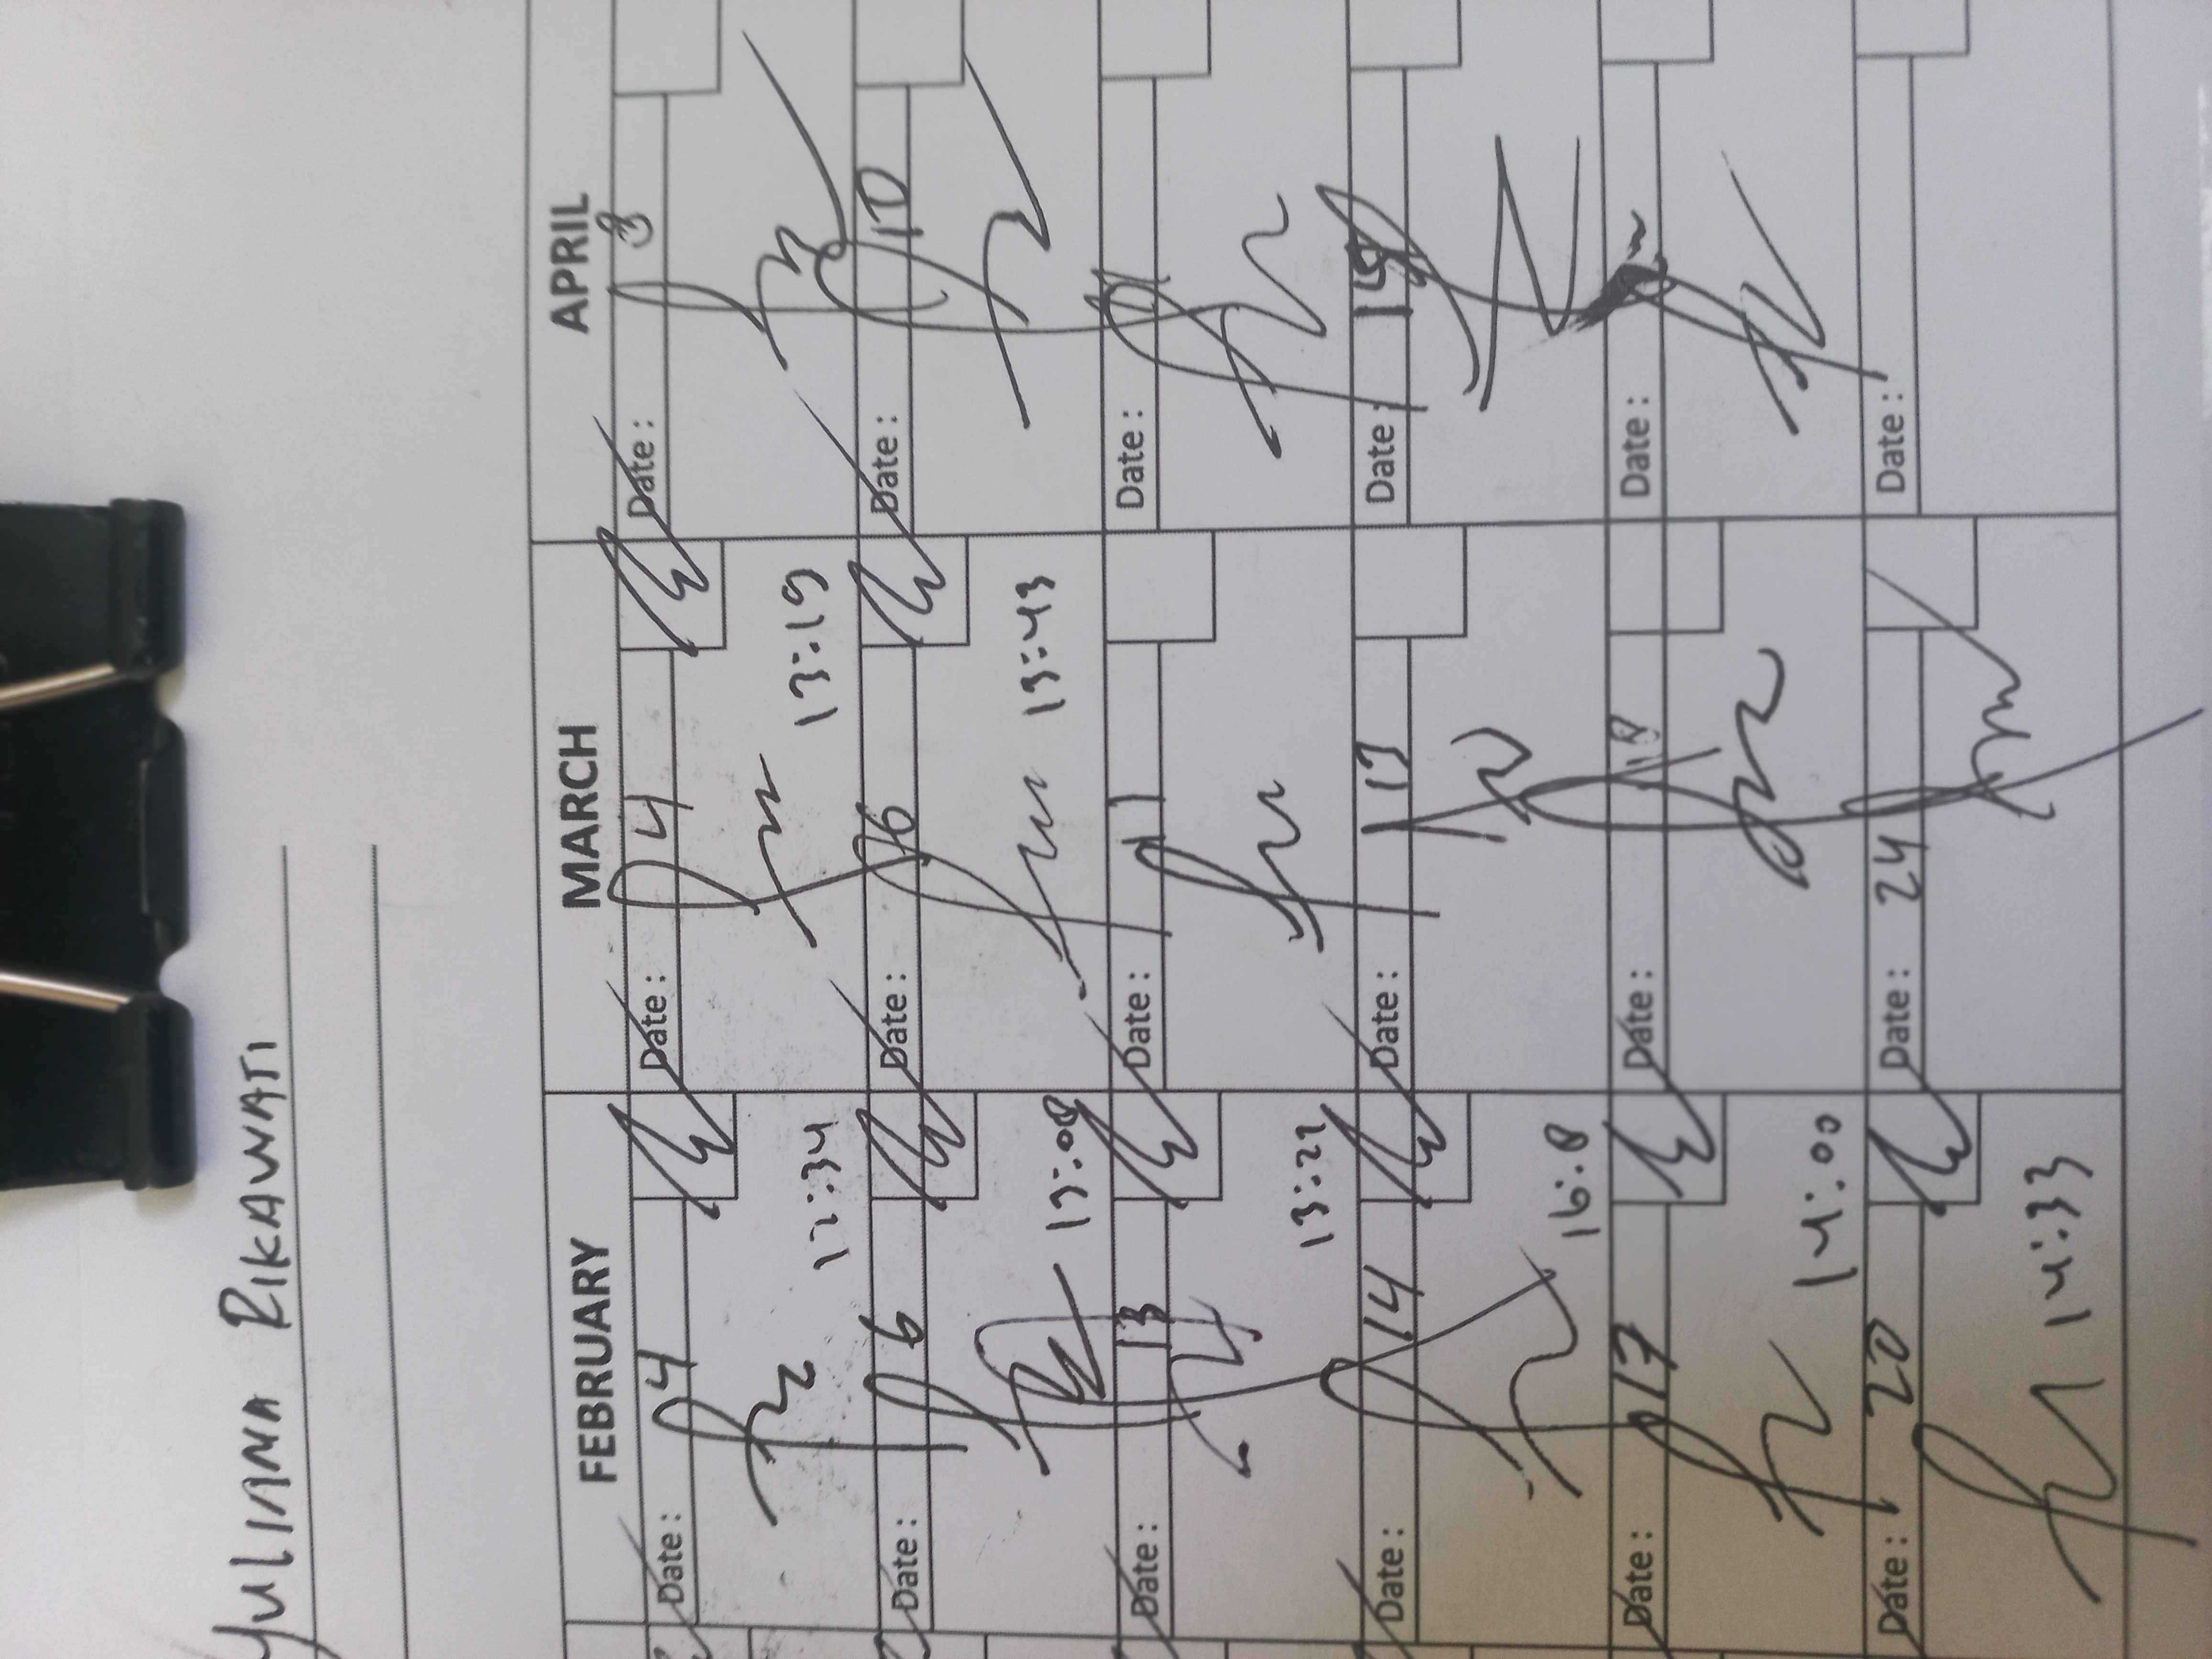 YULIANA RIKAWATI
FEBRUARY MARCH APRIL
Date: 4 Date: 4 Date: 3
12:34 13:19
Date: 6 Date: 6 Date: 10
13:08 13:43
Date: 13 Date: 11 Date:
13:22
Date: 14 Date: 17 Date: 15
16:8
Date: 17 Date: 18 Date:
14:00
Date: 20 Date: 24 Date:
14:33